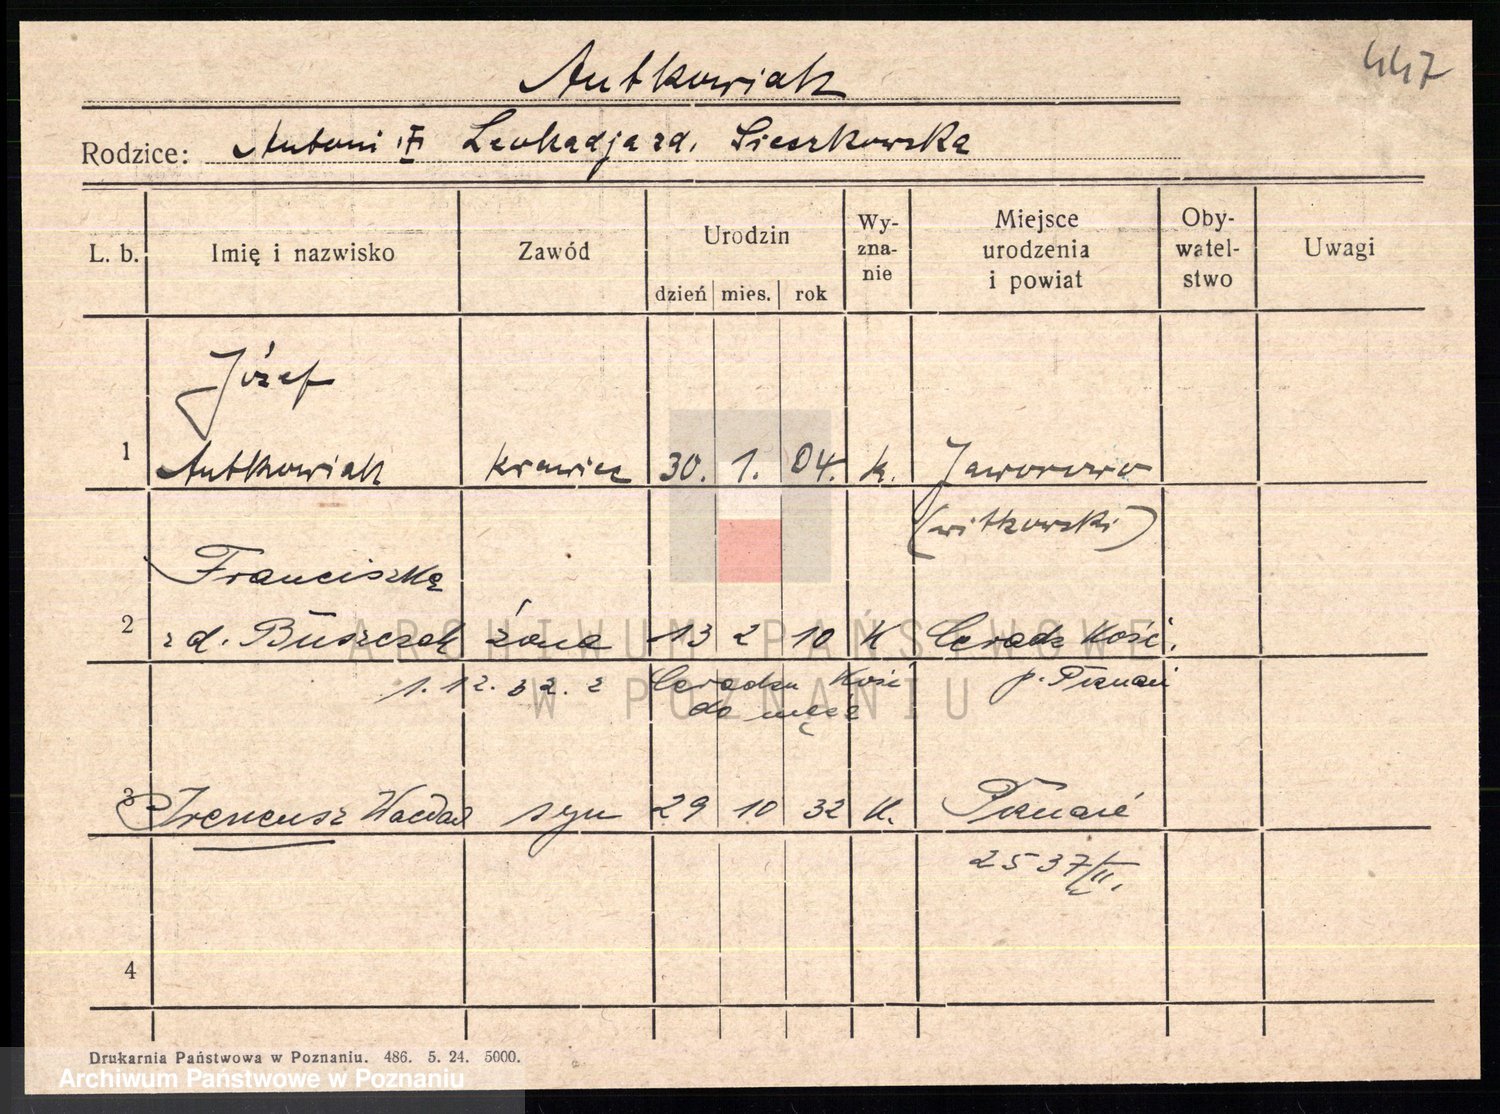 447
Antkowiak
Rodzice: Antoni i Leokadja zd. Sieszkowska
L. b. Imię i nazwisko Zawód Urodzin dzień mies. rok Wy-zna-nie Miejsce urodzenia i powiat Oby-watel-stwo Uwagi
Józef
1 Antkowiak krawiec 30. 1. 04. k. Jaworowo
(witkowski)
Franciszka
2 zd. Buszczak żona 13 2 10 K Ceradz Kość.
1.12.32. z Ceradza Kość p. Poznań
do męża
3 Ireneusz Wacław syn 29 10 32 K. Poznań
2537/II.
4
Drukarnia Państwowa w Poznaniu. 486. 5. 24. 5000.
ARCHIWUM PAŃSTWOWE
W POZNANIU
Archiwum Państwowe w Poznaniu